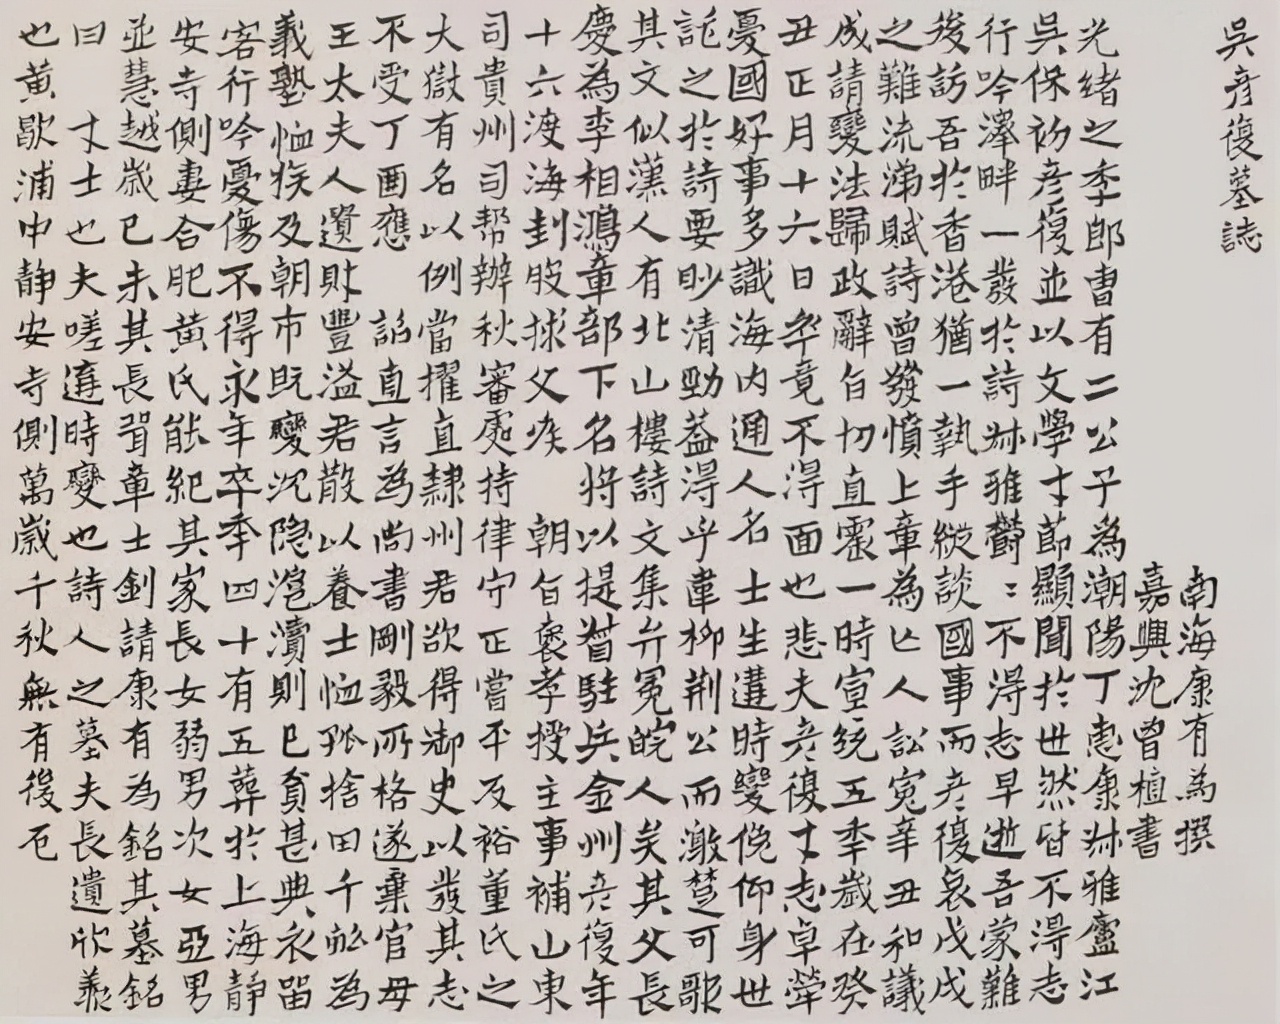 吳彥復墓誌
南海康有為撰
嘉興沈曾植書
光緒之季郎曹有二公子為潮陽丁惠康叔雅廬江
吳保初彥復並以文學才節顯聞於世然皆不得志
行吟澤畔一發於詩叔雅鬱〻不得志早逝吾蒙難
後訪吾於香港猶一執手縱談國事而彥復哀戊戌
之難流涕賦詩曾發憤上章為亡人訟冤辛丑和議
成請變法歸政辭旨切直震一時宣統五季歲在癸
丑正月十六日卒竟不得面也悲夫彥復才志卓犖
憂國好事多識海內通人名士生遘時變俛仰身世
託之於詩要眇清勁蓋得乎韋柳荊公而激楚可歌
其文似漢人有北山樓詩文集弁冕皖人矣其父長
慶為李相鴻章部下名將以提督駐兵金州彥復年
十六渡海刲股捄父疾 朝旨褒孝授主事補山東
司貴州司幫辦秋審處持律守正嘗平反裕董氏之
大獄有名以例當擢直隸州君欲得御史以發其志
不受丁酉應 詔直言為尚書剛毅所格遂棄官毋
王太夫人遺財豐溢君散以養士恤孤捨田千畝為
義塾恤族及朝市既變沉隱滬瀆則已貧甚典衣留
客行吟憂傷不得永年卒季四十有五葬於上海靜
安寺側妻合肥黃氏能紀其家長女弱男次女亞男
並慧越歲己未其長壻章士釗請康有為銘其墓銘
曰 才士也夫嗟遘時變也詩人之墓夫長遺欣羨
也黃歇浦中靜安寺側萬歲千秋無有後厄